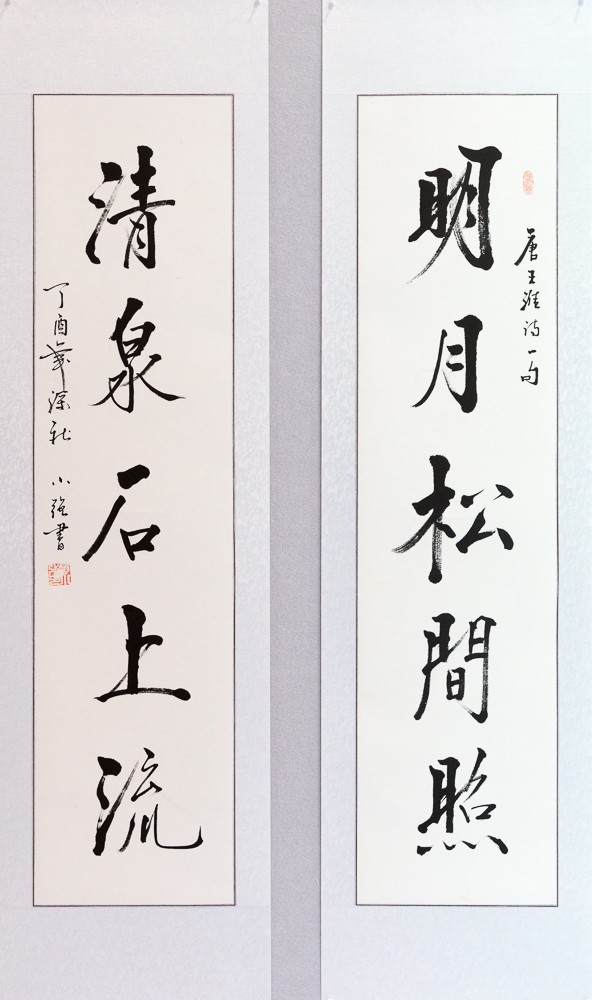 唐王維诗一句
明月松間照
清泉石上流
丁酉年深秋 小强書